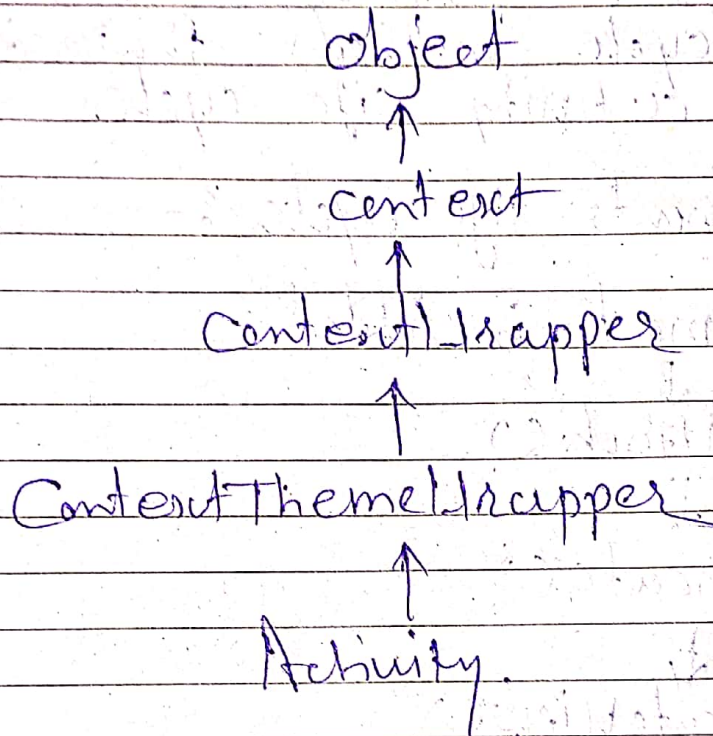 Object
↑
Context
↑
ContextWrapper
↑
ContextThemeWrapper
↑
Activity.